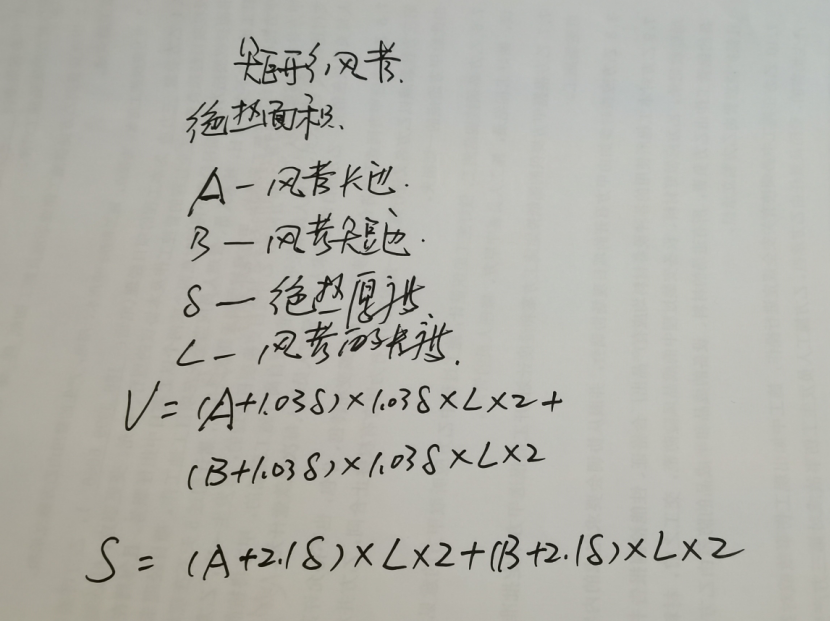 矩形风管.
绝热面积.
A－风管长边.
B－风管短边.
δ－绝热厚度.
L－风管的长度.
V=(A+1.03δ)×1.03δ×L×2+
(B+1.03δ)×1.03δ×L×2
S=(A+2.1δ)×L×2+(B+2.1δ)×L×2